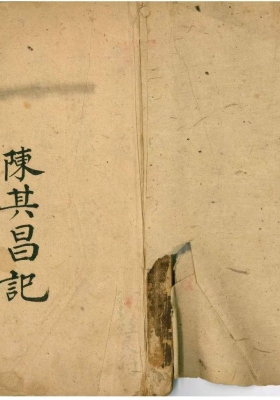 陳其昌記